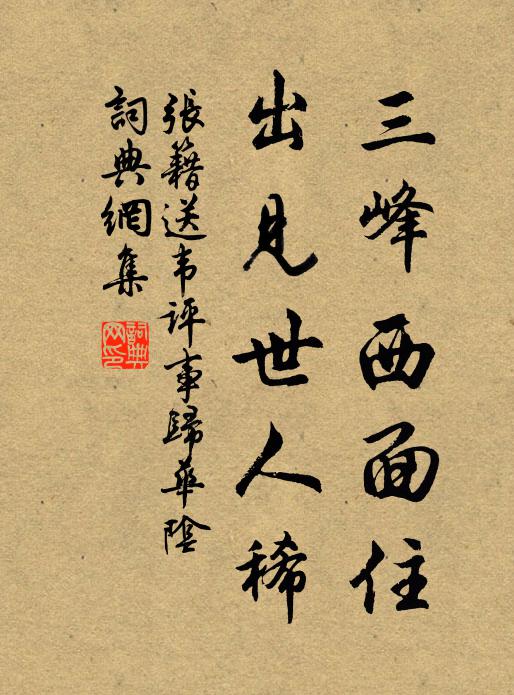 三峰西面住
出見世人稀
張籍送韦评事歸華陰
詞典網集
詞典网印